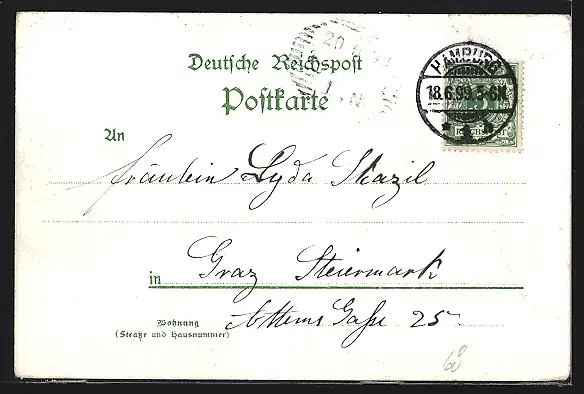 Deutsche Reichspost
Postkarte
HAMBURG
18.6.99.5-6N
1
An
Fräulein Lyda Skazil
in Graz Steiermark
Wohnung
(Straße und Hausnummer)
Attems Gasse 25